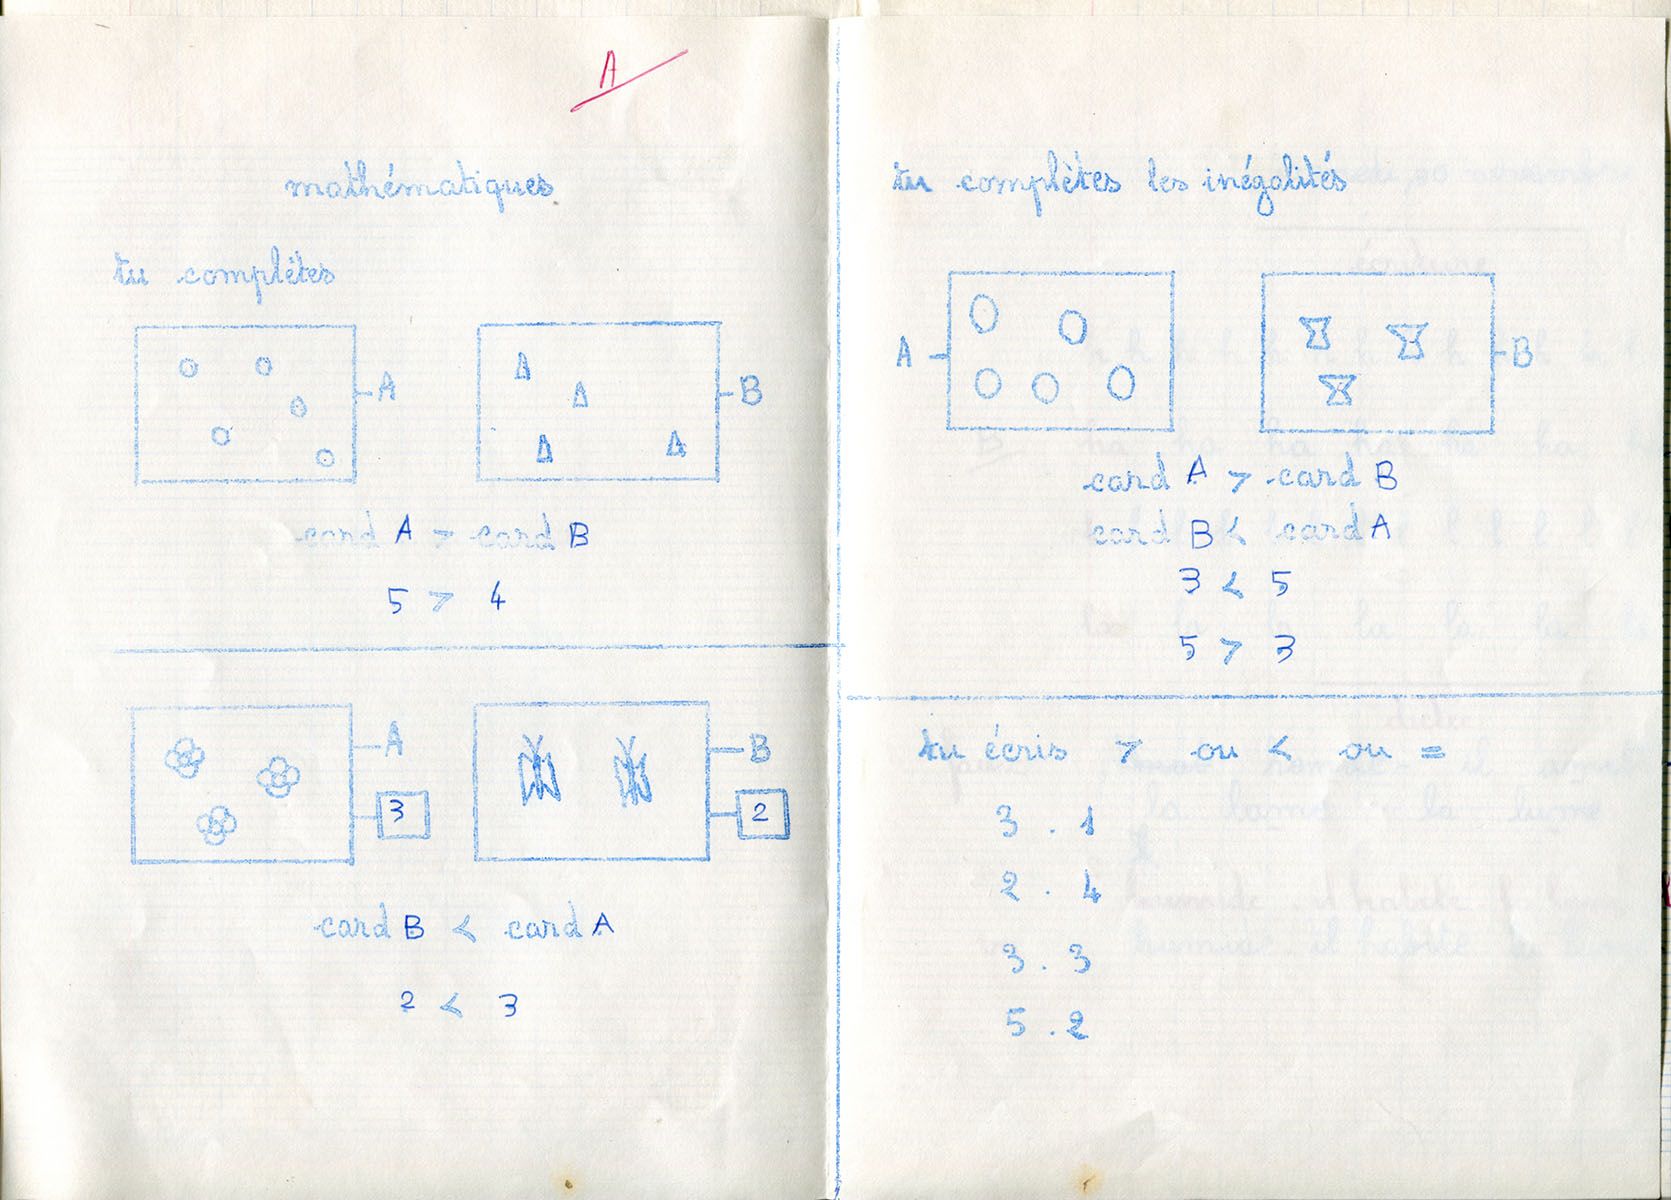 A
mathématiques
tu complètes
A
B
card A > card B
5 > 4
A
3
B
2
card B < card A
2 < 3
tu complètes les inégalités
A
B
card A > card B
card B < card A
3 < 5
5 > 3
tu écris > ou < ou =
3 . 1
2 . 4
3 . 3
5 . 2